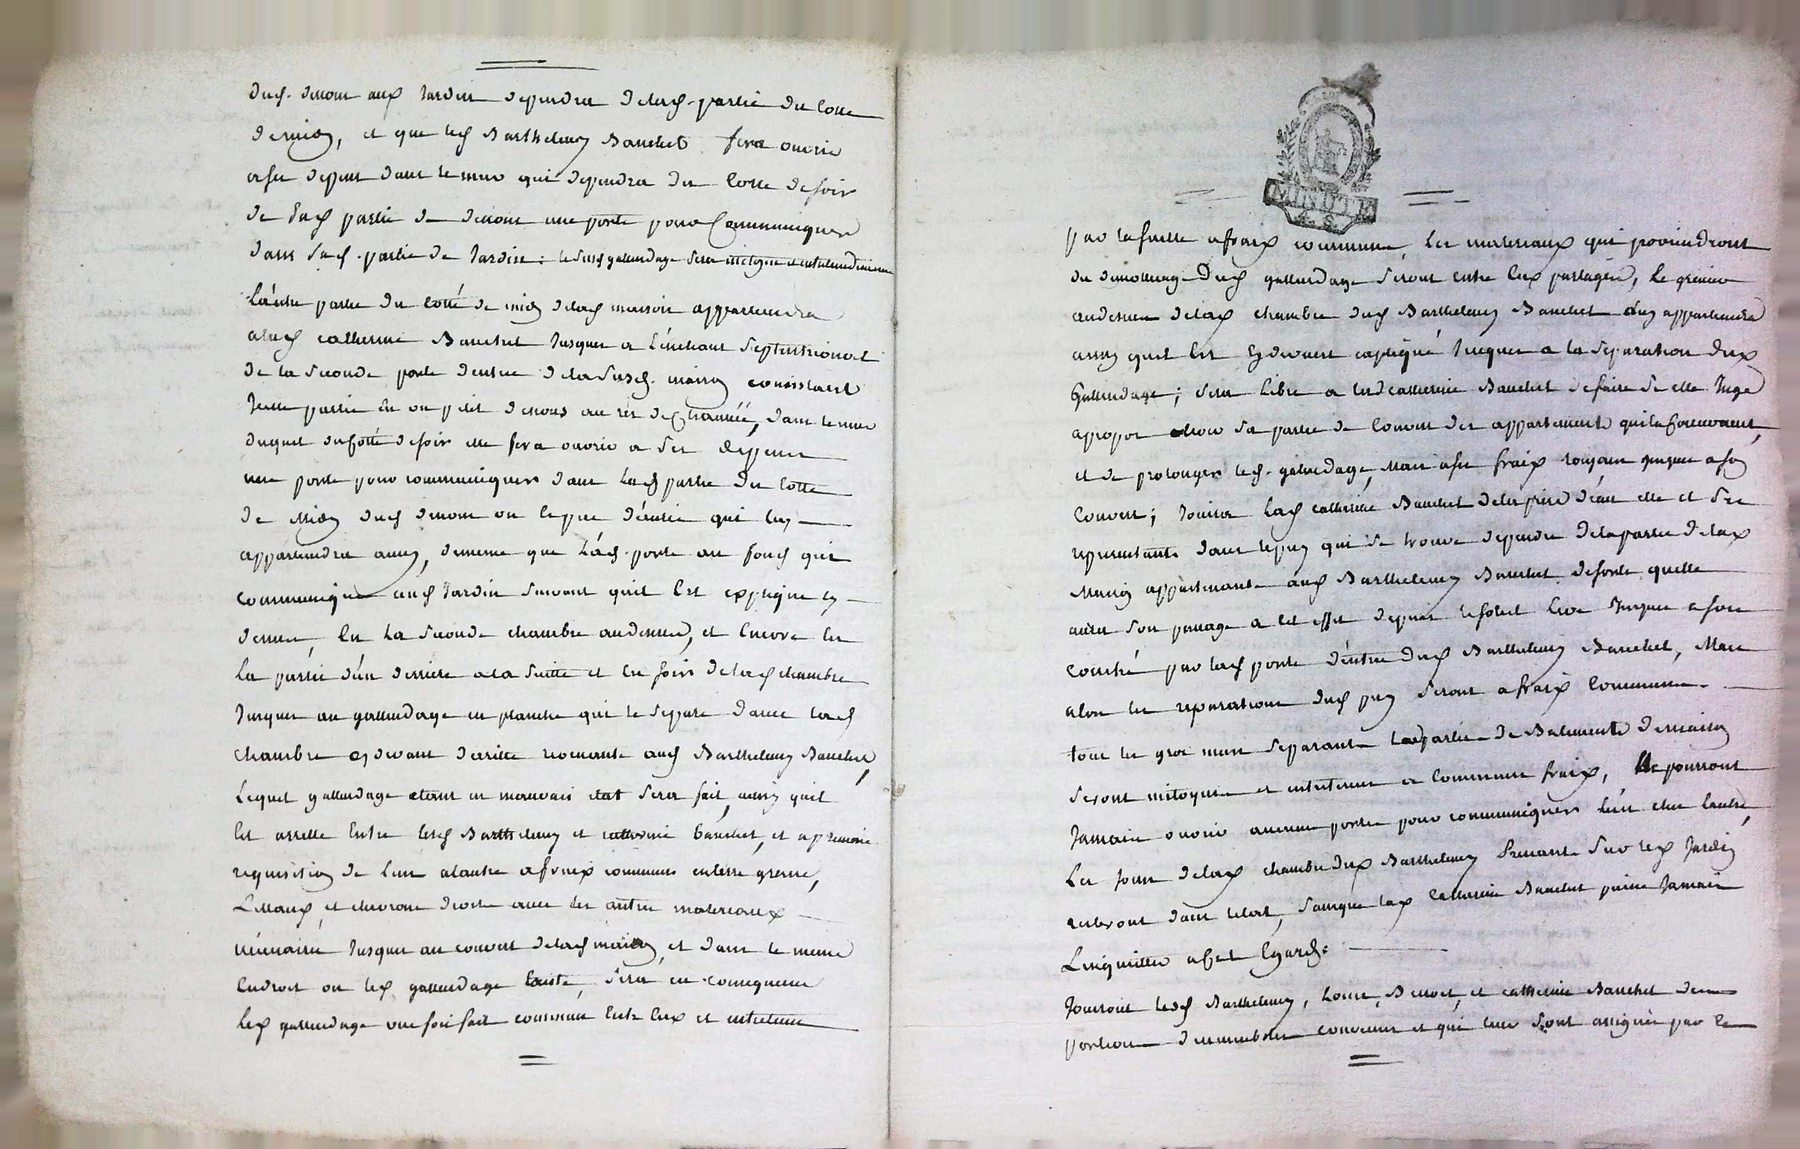 dud. dessous aux Jardin dependra de lad. partie du Cotté
de midy, et que led Barthelemy Banchet fera ouvrir
a ses depens dans le mur qui dependra du Cotté de soir
de lad partie de dessous une porte pour Communiquer
dans lad. partie de Jardin: le susd galandage sera mitoyen et entretenu
L'autre partie du Cotté de midy de lad maison appartiendra
a lad catherine Banchet Jusques a septentrional
de la seconde porte d'entrée de la susd. maison consistant
Icelle partie en un petit dessous au rés de Chaussée, dans le mur
duquel du Cotté de soir elle fera ouvrir a ses depens
une porte pour communiquer dans lad partie du Cotté
de midy dud dessous ou Espece d'écurie qui luy
appartiendra aussy, de meme que lad. porte au fond qui
communique aud Jardin suivant qu'il Est expliqué cy
dessus, En la seconde chambre audessus, et Encore En
La partie d'un derriere a la suitte et En soir de lad chambre
Jusques au galandage en planche qui le separe d'avec lad
chambre cy devant derriere revenante aud Barthelemy Banchet,
Lequel galandage etant en mauvais etat sera fait, aussy qu'il
Est arretté Entre lesd Barthelemy et catherine Banchet, et a premiere
requisition de l'un a l'autre a fraix communs
Litteaux, et chevrons droits avec les autres materiaux
nécessaires Jusques au couvert de lad maison, et dans le meme
Endroit ou led galandage Existe, sera en consequence
led galandage une fois fait commun Entr'Eux et entretenu
par la suitte a fraix communs, Les materiaux qui proviendront
du demollissage Dud galandage seront entre Eux partagés, le grenier
audessus de lad chambre dud Barthelemy Banchet luy appartiendra
aussy qu'il Est Cy devant expliqué Jusques a la separation dud
Galandage; sera libre a lad catherine Banchet de faire si elle Juge
apropos sa partie de Couvert des appartements
et de prolonger led. galandage, Mais a ses fraix Jusques a son
Couvert; Jouira Lad catherine Banchet de la prise d'eau elle et ses
representants dans le puy qui se trouve dependre de la partie de lad
Maison appartenante aud Barthelemy Banchet de sorte quelle
aura son passage a cet effet depuis le soleil levé Jusques a son
Couché par lad porte d'entrée dud Barthelemy Banchet, Mais
alors les reparations dud puy seront a fraix Communs.
tous les gros murs separants lesd parties de Batiments de maison
seront mitoyens et entretenus a Communs fraix, Ne pourront
Jamais ouvrir aucune porte pour communiquer l'un chez l'autre,
Les Jours de lad chambre dud Barthelemy Prenants sur led Jardin
resteront dans l'etat, sans que lad Catherine Banchet puisse Jamais
L'inquietter a cet Egard.
Jouiront lesd Barthelemy, Louis, Benoit, et catherine Banchet des
portions d'immeubles convenus et qui leur sont assignés par le
LOI
MINUTE